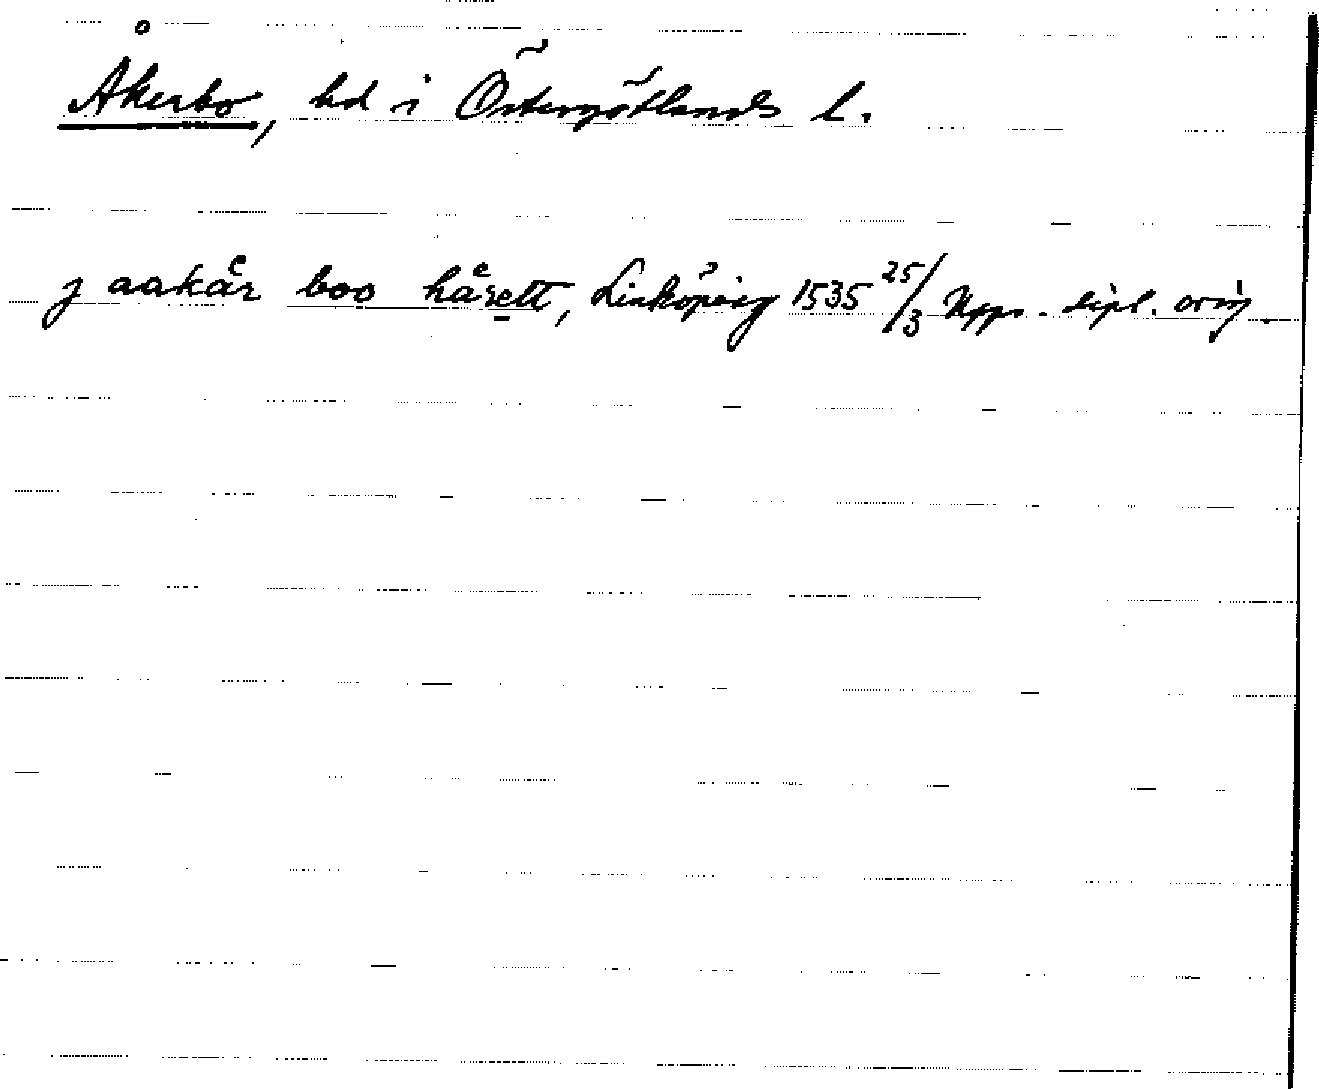 Åkerbo, hd i Östergötlands l.
j aakaͤr boo haͤrett, Linköping 1535 25/3 Upps. dipl. orig.